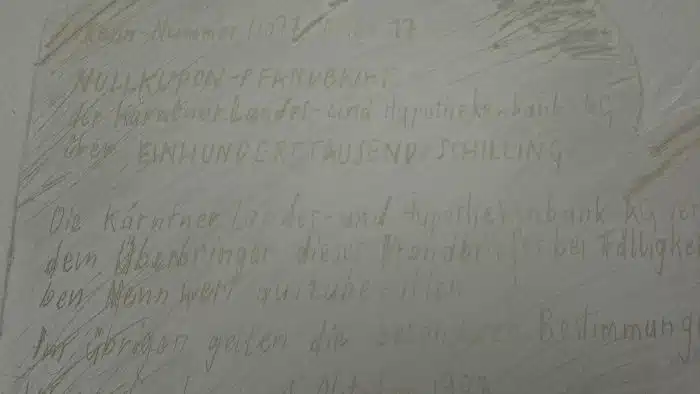 Kenn-Nummer
NULLKUPON-PFANDBRIEF
der Kärntner Landes- und Hypothekenbank AG
über EINHUNDERTTAUSEND SCHILLING
Die Kärntner Landes- und Hypothekenbank AG
dem Überbringer dieses Pfandbriefes bei Fälligkei
ben Nennwert
Im übrigen gelten die besonderen Bestimmung
Oktober